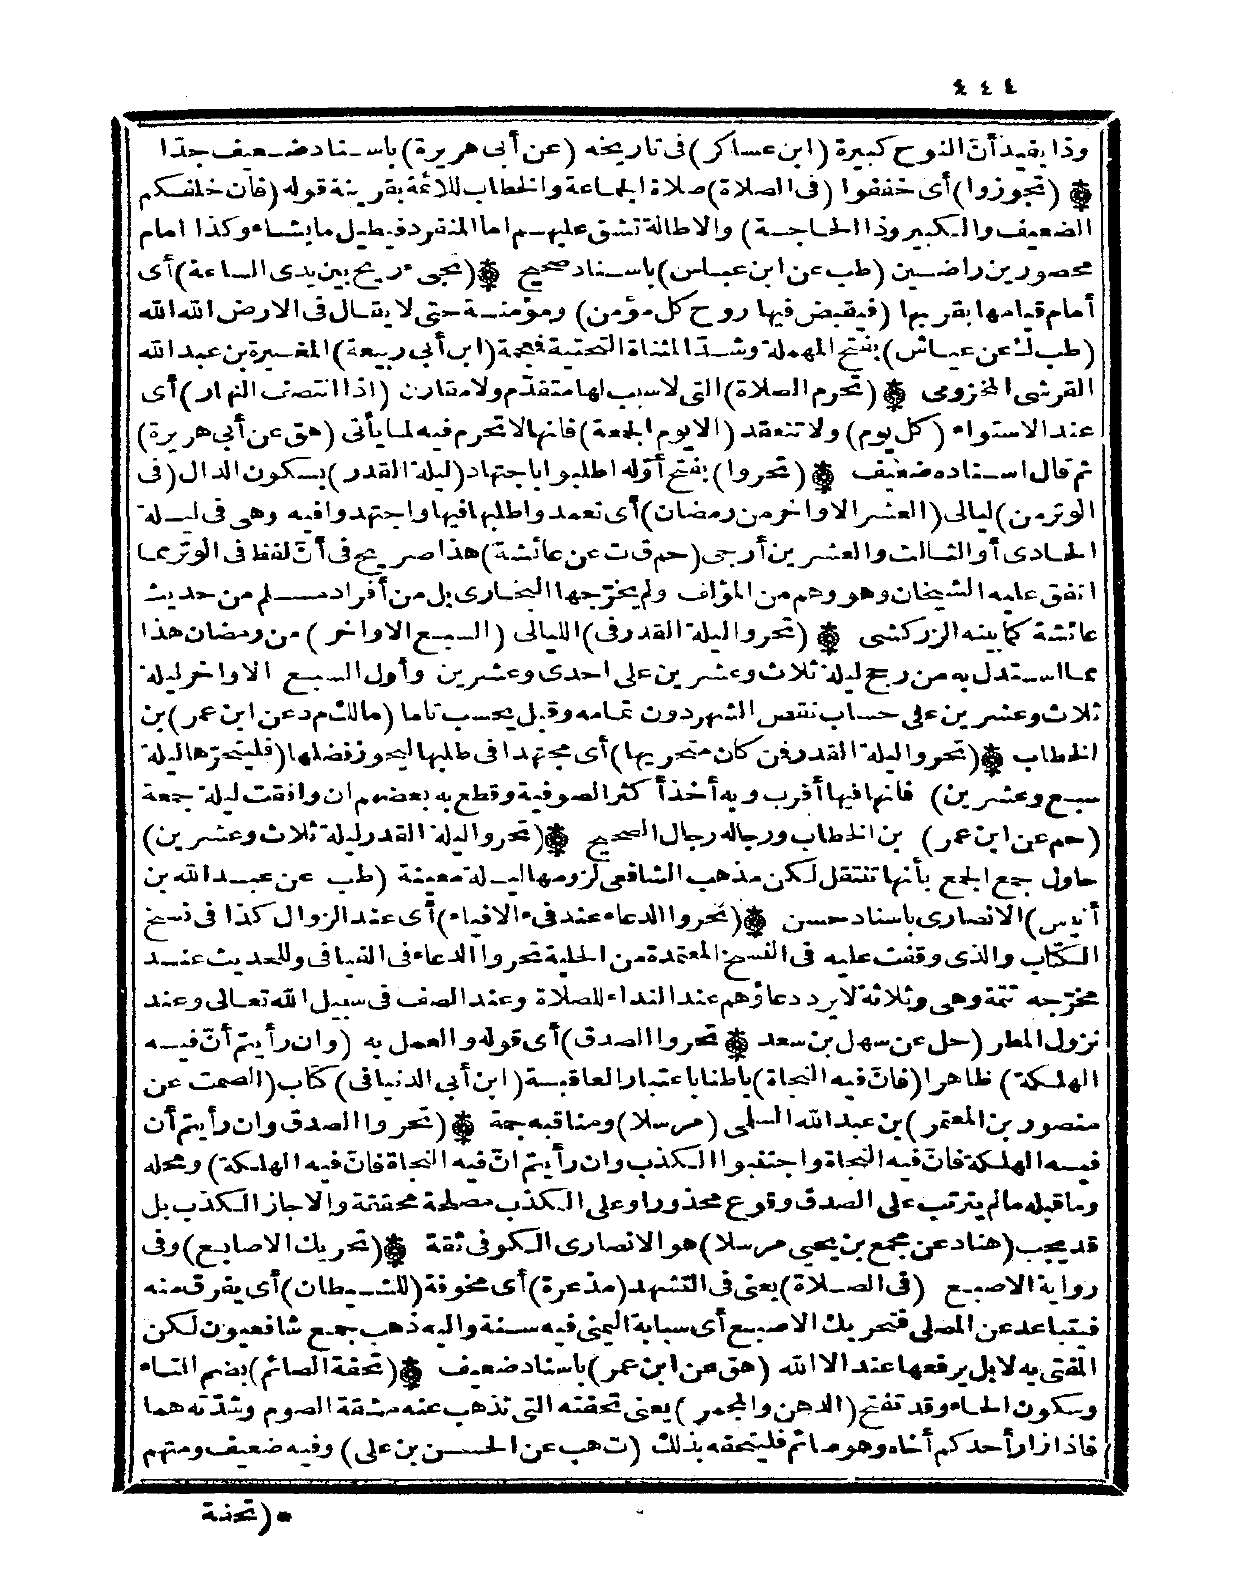 ٤٤٤
وذا يفيد أنّ النوح كبيرة (ابن عساكر) فى تاريخه (عن أبى هريرة) باسناد ضعيف جدّا
(تجوزوا) أى خففوا (فى الصلاة) صلاة الجماعة والخطاب للائمة بقرينة قوله (فان خلفكم
الضعيف والكبير وذا الحاجة) والاطالة تشق عليهم اما المنفرد فيطيل ما يشاء وكذا امام
محصورين راضين (طب عن ابن عباس) باسناد صحيح (تجىء ريح بين يدى الساعة) أى
أمام قيامها بقربها (فيقبض فيها روح كل مؤمن) ومؤمنة حتى لا يقال فى الارض الله الله
(طب ك عن عياش) بفتح المهملة وشدّ المثناة التحتية فمعجمة (ابن أبى ربيعة) المغيرة بن عبد الله
القرشى المخزومى (تحرم الصلاة) التى لا سبب لها متقدّم ولا مقارن (اذا انتصف النهار) أى
عند الاستواء (كل يوم) ولا تنعقد (الا يوم الجمعة) فانها لا تحرم فيه لما يأتى (هق عن أبى هريرة)
ثم قال اسناده ضعيف (تحروا) بفتح أوّله اطلبوا باجتهاد (ليلة القدر) بسكون الدال (فى
الوتر من) ليالى (العشر الاواخر من رمضان) أى تعمدوا طلبها فيها واجتهدوا فيه وهى فى ليلة
الحادى أو الثالث والعشرين أرجى (حم ق ت عن عائشة) هذا صريح فى أنّ لفظ فى الوتر مما
اتفق عليه الشيخان وهو وهم من المؤلف ولم يخرّجها البخارى بل من أفراد مسلم من حديث
عائشة كما بينه الزركشى (تحروا ليلة القدر فى) الليالى (السبع الاواخر) من رمضان هذا
مما استدل به من رجح ليلة ثلاث وعشرين على احدى وعشرين وأول السبع الاواخر ليلة
ثلاث وعشرين على حساب نقص الشهر دون تمامه وقيل يحسب تاما (مالك م د عن ابن عمر) بن
الخطاب (تحروا ليلة القدر فمن كان متحريها) أى مجتهدا فى طلبها ليحوز فضلها (فليتحرّها ليلة
سبع وعشرين) فانها فيها أقرب وبه أخذ أكثر الصوفية وقطع به بعضهم ان وافقت ليلة جمعة
(حم عن ابن عمر) بن الخطاب ورجاله رجال الصحيح (تحروا ليلة القدر ليلة ثلاث وعشرين)
حاول جمع الجمع بأنها تنتقل لكن مذهب الشافعى لزومها ليلة معينة (طب عن عبد الله بن
أنيس) الانصارى باسناد حسن (تحروا الدعاء عند فىء الافياء) أى عند الزوال كذا فى نسخ
الكتاب والذى وقفت عليه فى النسخ المعتمدة من الحلية تحروا الدعاء فى الفيافى وللحديث عند
مخرّجه تتمة وهى وثلاثة لا يرد دعاؤهم عند النداء للصلاة وعند الصف فى سبيل الله تعالى وعند
نزول المطر (حل عن سهل بن سعد تحروا الصدق) أى قوله والعمل به (وان رأيتم أنّ فيه
الهلكة) ظاهرا (فانّ فيه النجاة) باطنا باعتبار العاقبة (ابن أبى الدنيا فى) كتاب (الصمت عن
منصور بن المعتمر) بن عبد الله السلمى (مرسلا) ومناقبه جمة (تحروا الصدق وان رأيتم أن
فيه الهلكة فانّ فيه النجاة واجتنبوا الكذب وان رأيتم انّ فيه النجاة فانّ فيه الهلكة) ومحله
وما قبله ما لم يترتب على الصدق وقوع محذور او على الكذب مصلحة محققة والا جاز الكذب بل
قد يجب (هناد عن مجمع بن يحيى مرسلا) هو الانصارى الكوفى ثقة (تحريك الاصابع) وفى
رواية الاصبع (فى الصلاة) يعنى فى التشهد (مذعرة) أى مخوفة (للشيطان) أى يفرق منه
فيتباعد عن المصلى فتحريك الاصبع أى سبابة اليمنى فيه سنة واليه ذهب جمع شافعيون لكن
المفتى به لا بل يرفعها عند الا الله (هق عن ابن عمر) باسناد ضعيف (تحفة الصائم) بضم التاء
وسكون الحاء وقد تفتح (الدهن والمجمر) يعنى تحفته التى تذهب عنه مشقة الصوم وشدّته هما
فاذا زار أحدكم أخاه وهو صائم فليتحفه بذلك (ت هب عن الحسن بن على) وفيه ضعيف ومتهم
(تحفة